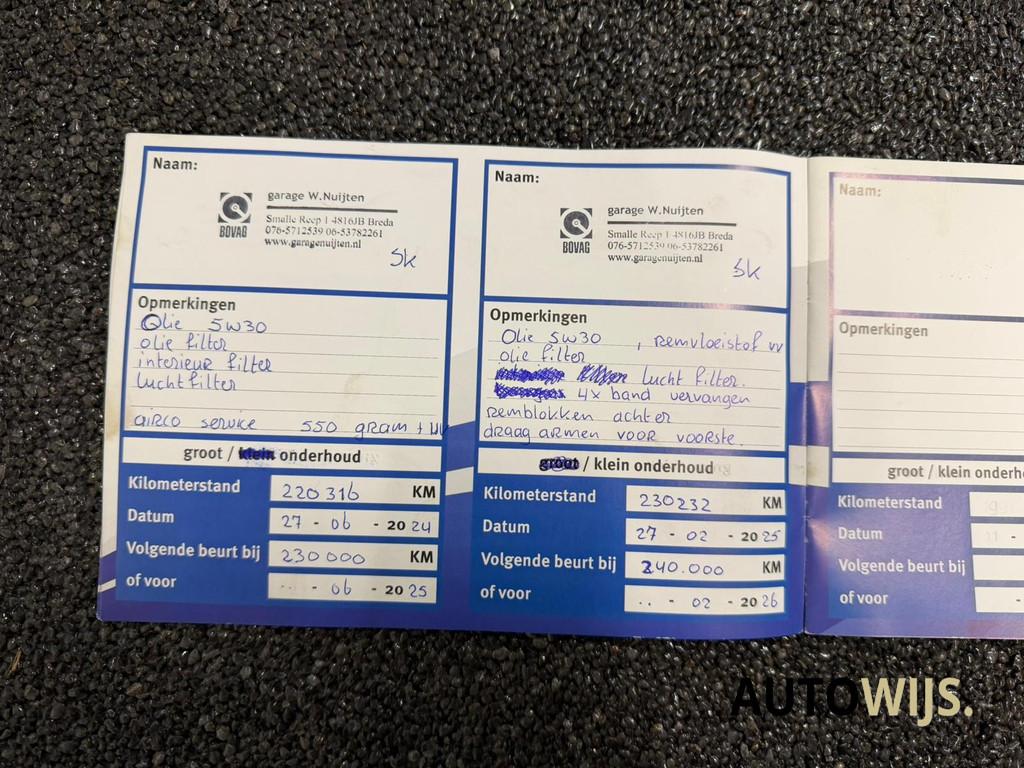 Naam:
garage W.Nuijten
Smalle Reep 1 4816JB Breda
076-5712539 06-53782261
www.garagenuijten.nl
BOVAG
Sk
Opmerkingen
Olie 5w30
olie filter
interieur filter
lucht filter
airco service 550 gram +
groot / klein onderhoud
Kilometerstand 220316 KM
Datum 27 - 06 - 20 24
Volgende beurt bij 230000 KM
of voor .. - 06 - 20 25
Naam:
garage W.Nuijten
Smalle Reep 1 4816JB Breda
076-5712539 06-53782261
www.garagenuijten.nl
BOVAG
Sk
Opmerkingen
Olie 5w30 , remvloeistof vv
olie filter
lucht filter.
4x band vervangen
remblokken achter
draag armen voor voorste.
groot / klein onderhoud
Kilometerstand 230232 KM
Datum 27 - 02 - 20 25
Volgende beurt bij 240.000 KM
of voor .. - 02 - 20 26
Naam:
Opmerkingen
groot / klein onderho
Kilometerstand
Datum -
Volgende beurt bij
of voor -
AUTOWIJS.